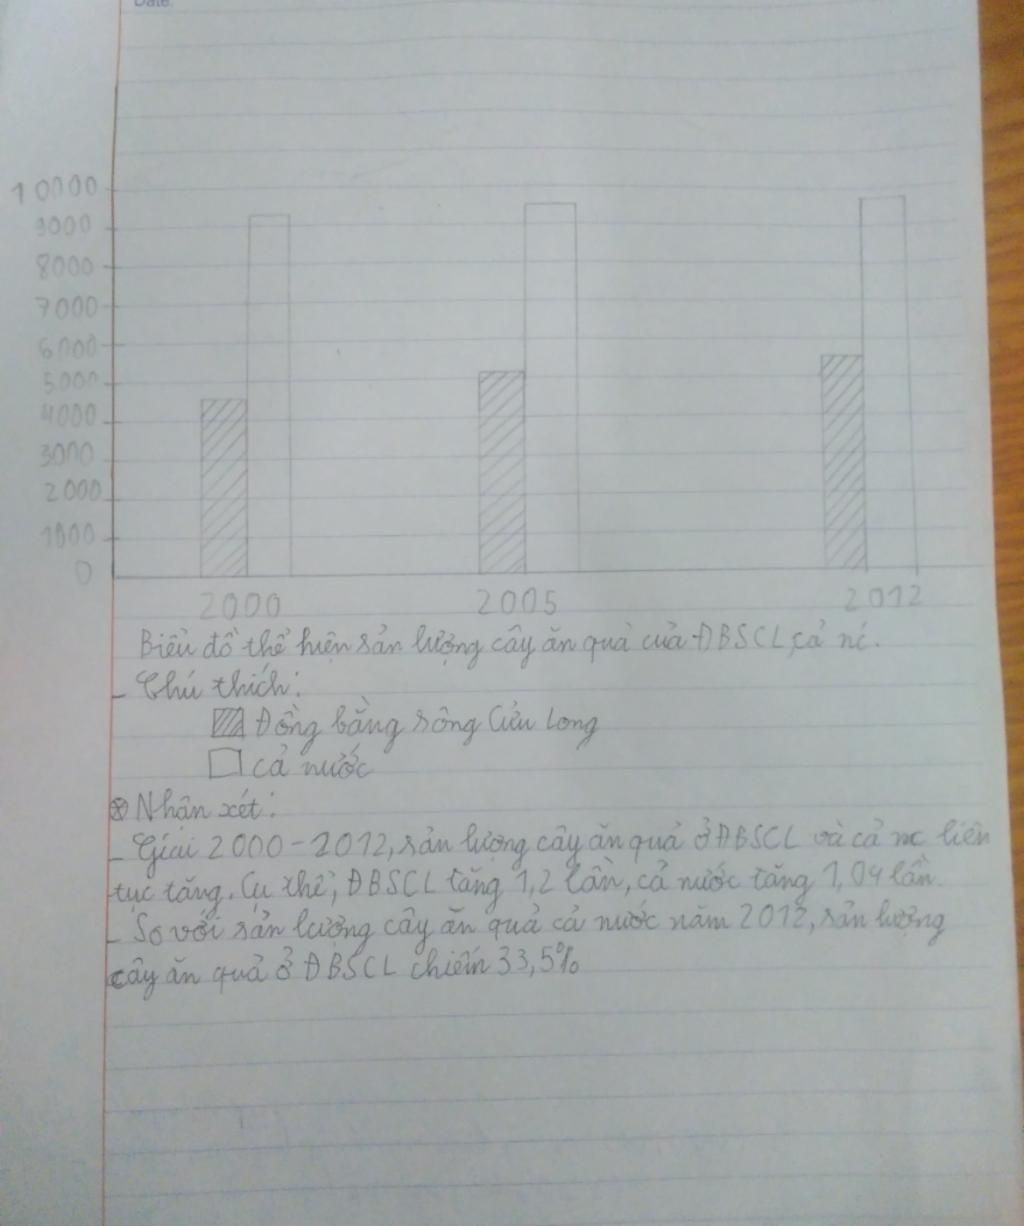 Date.
10000
9000
8000
7000
6000
5000
4000
3000
2000
1000
0
2000 2005 2012
Biểu đồ thể hiện sản lượng cây ăn quả của ĐBSCL, cả nc.
- Chú thích:
Đồng bằng sông Cửu Long
cả nước
⊗ Nhận xét:
- Giai 2000-2012, sản lượng cây ăn quả ở ĐBSCL và cả nc liên
tục tăng. Cụ thể, ĐBSCL tăng 1,2 lần, cả nước tăng 1,04 lần.
- So với sản lượng cây ăn quả cả nước năm 2012, sản lượng
cây ăn quả ở ĐBSCL chiếm 33,5%